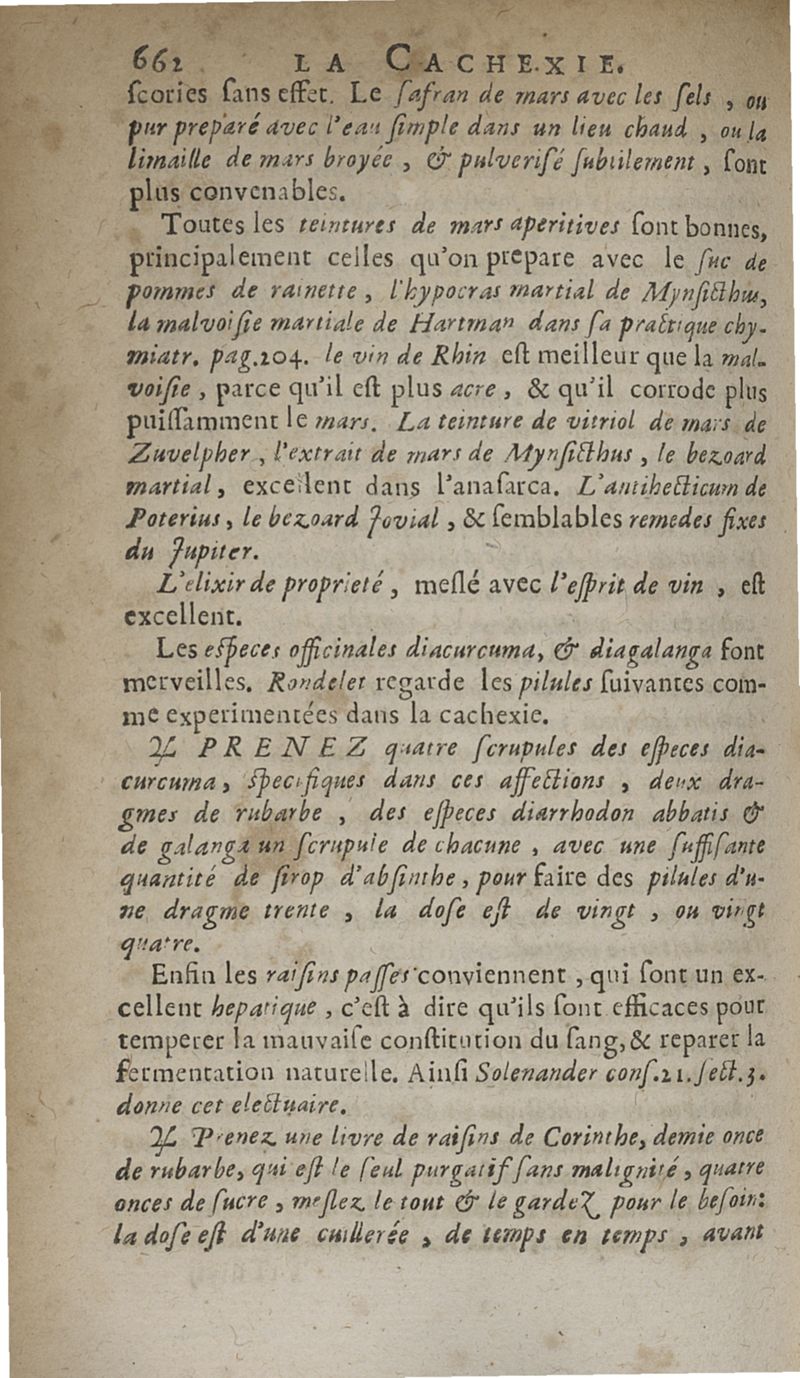 662 LA CACHEXIE.
ſcories ſans effet. Le ſafran de mars avec les ſels , ou
pur preparé avec l'eau ſimple dans un lieu chaud , ou la
limaille de mars broyée , & pulveriſé ſubtilement , ſont
plus convenables.
Toutes les teintures de mars aperitives ſont bonnes,
principalement celles qu'on prepare avec le ſuc de
pommes de rainette , l'hypocras martial de Mynſicthus,
la malvoiſie martiale de Hartman dans ſa practique chy-
miatr. pag.204. le vin de Rhin eſt meilleur que la mal-
voiſie , parce qu'il eſt plus acre , & qu'il corrode plus
puiſſamment le mars. La teinture de vitriol de mars de
Zuvelpher , l'extrait de mars de Mynſicthus , le bezoard
martial , excellent dans l'anaſarca. L'antihecticum de
Poterius , le bezoard Jovial , & ſemblables remedes fixes
du Jupiter.
L'elixir de proprieté , meſlé avec l'eſprit de vin , eſt
excellent.
Les eſpeces officinales diacurcuma, & diagalanga font
merveilles. Rondelet regarde les pilules ſuivantes com-
me experimentées dans la cachexie.
♃ PRENEZ quatre ſcrupules des eſpeces dia-
curcuma , ſpecifiques dans ces affections , deux dra-
gmes de rubarbe , des eſpeces diarrhodon abbatis &
de galanga un ſcrupule de chacune , avec une ſuffiſante
quantité de ſirop d'abſinthe , pour faire des pilules d'u-
ne dragme trente , la doſe eſt de vingt , ou vingt
quatre.
Enfin les raiſins paſſes conviennent , qui ſont un ex-
cellent hepatique , c'eſt à dire qu'ils ſont efficaces pour
temperer la mauvaiſe conſtitution du ſang, & reparer la
fermentation naturelle. Ainſi Solenander conſ.21.ſect.3.
donne cet electuaire.
♃ Prenez une livre de raiſins de Corinthe, demie once
de rubarbe, qui eſt le ſeul purgatif ſans malignité , quatre
onces de ſucre , meſlez le tout & le gardez pour le beſoin:
la doſe eſt d'une cuillerée , de temps en temps , avant